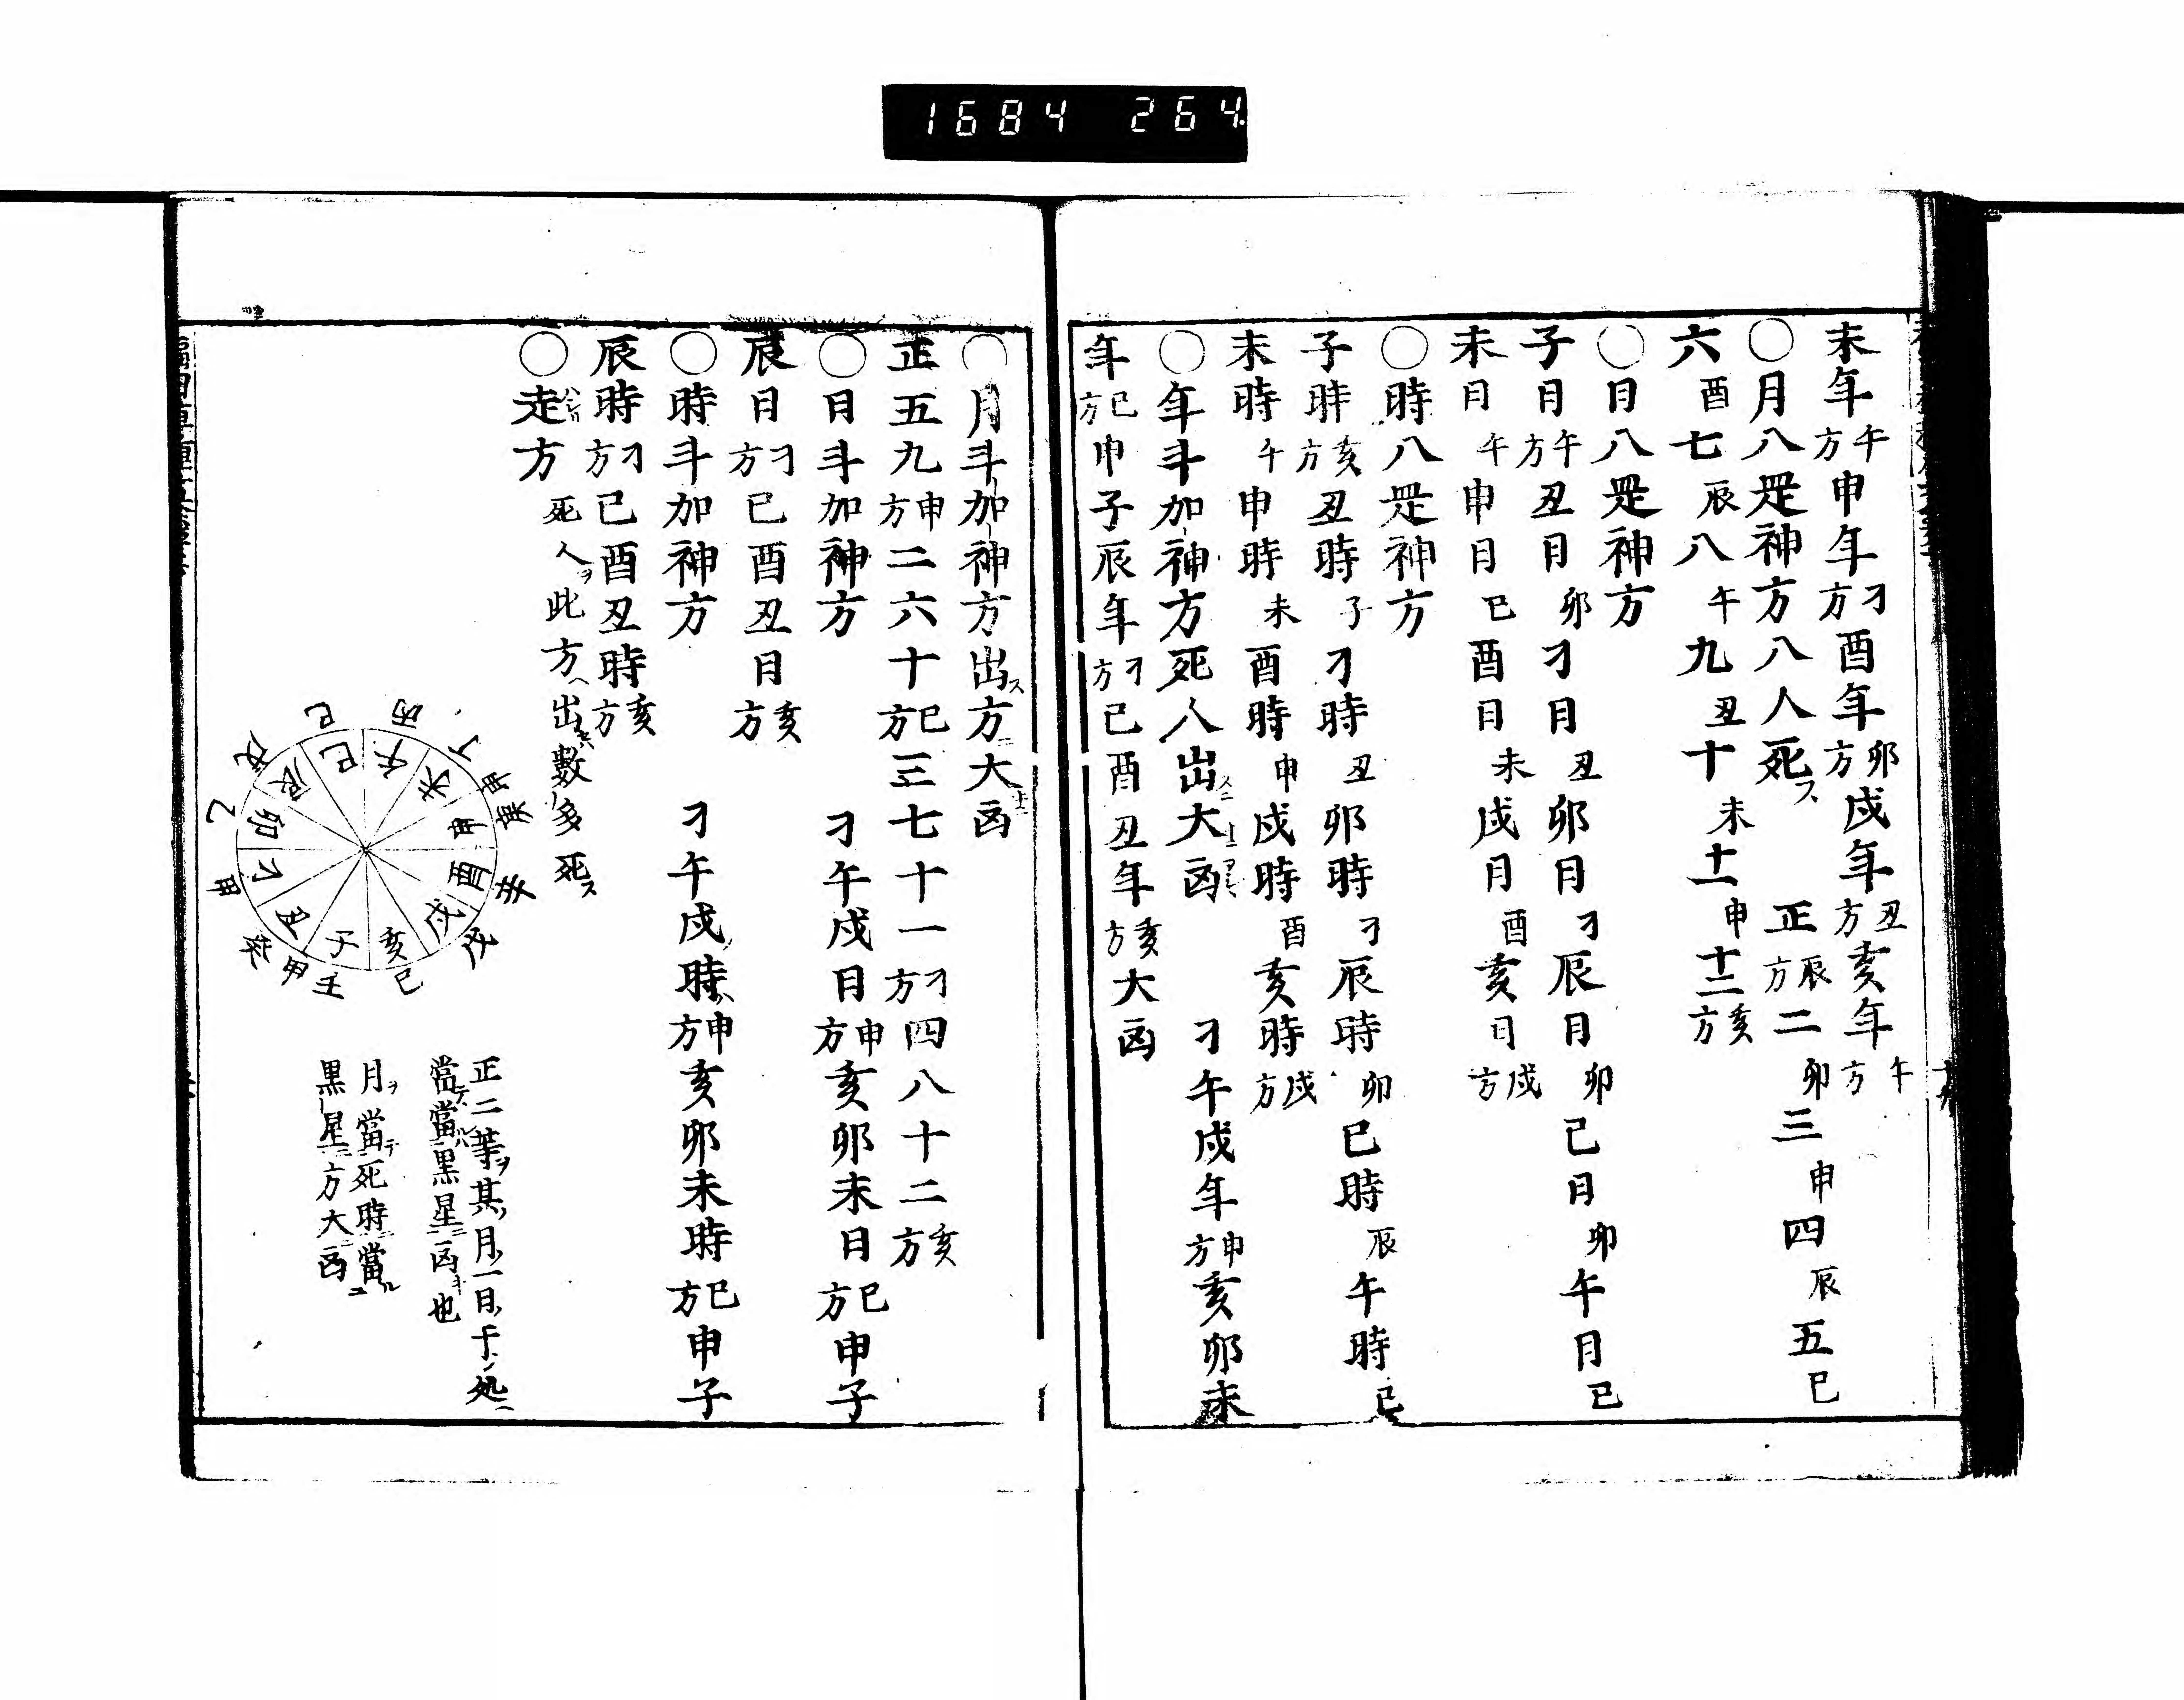 1684 264.
未年午方申年刁方酉年卯方戌年丑方亥年午方
〇月八𮊁神方八人死ス 正辰方二卯三申四辰五巳
六酉七辰八午九丑十未十一申十二亥方
〇日八𮊁神方
子日午方丑日卯刁日丑卯日刁辰日卯巳日卯午日巳
未日午申日巳酉日未戌日酉亥日戌方
〇時八𮊁神方
子時亥方丑時子刁時丑卯時刁辰時卯巳時辰午時巳
未時午申時未酉時申戌時酉亥時戌方
〇年斗加神方死人出大凶 刁午戌年申方亥卯未
年巳方申子辰年刁方巳酉丑年亥方大凶
〇月斗加神方出ス方大凶
正五九申方二六十巳方三七十一刁方四八十二亥方
〇日斗加神方 刁午戌日申方亥卯未日巳方申子
辰日刁方巳酉丑日亥方
〇時斗加神方 刁午戌時申方亥卯未時巳方申子
辰時刁方巳酉丑時亥方
〇走方 死人ヲ此方ヘ出數多死ス
午 未 申 酉 戌 亥 子 丑 刁 卯 辰 巳
丙 丁 庚 辛 戌 巳 壬 甲 癸 甲 乙 戊 巳
正二等ヲ其月一日ノ干ノ処ヘ
當テ當ル黒星ニ凶キ也
月ヲ當テ死時ニ當ル
黒星ニ方大凶